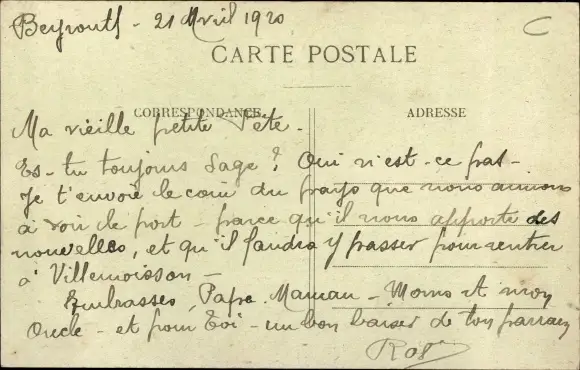 Beyrouth - 21 Avril 1920
CARTE POSTALE
CORRESPONDANCE
ADRESSE
Ma vieille petite Tête -
Es-tu toujours sage ? Oui n'est-ce pas -
Je t'envoie le coin du pays que nous aimons
à voir le port - parce qu'il nous apporte des
nouvelles, et qu'il faudra y passer pour rentrer
à Villemoisson -
Embrasses, Papa. Maman - Momo et mon
Oncle - et pour toi - un bon baiser de ton parrain